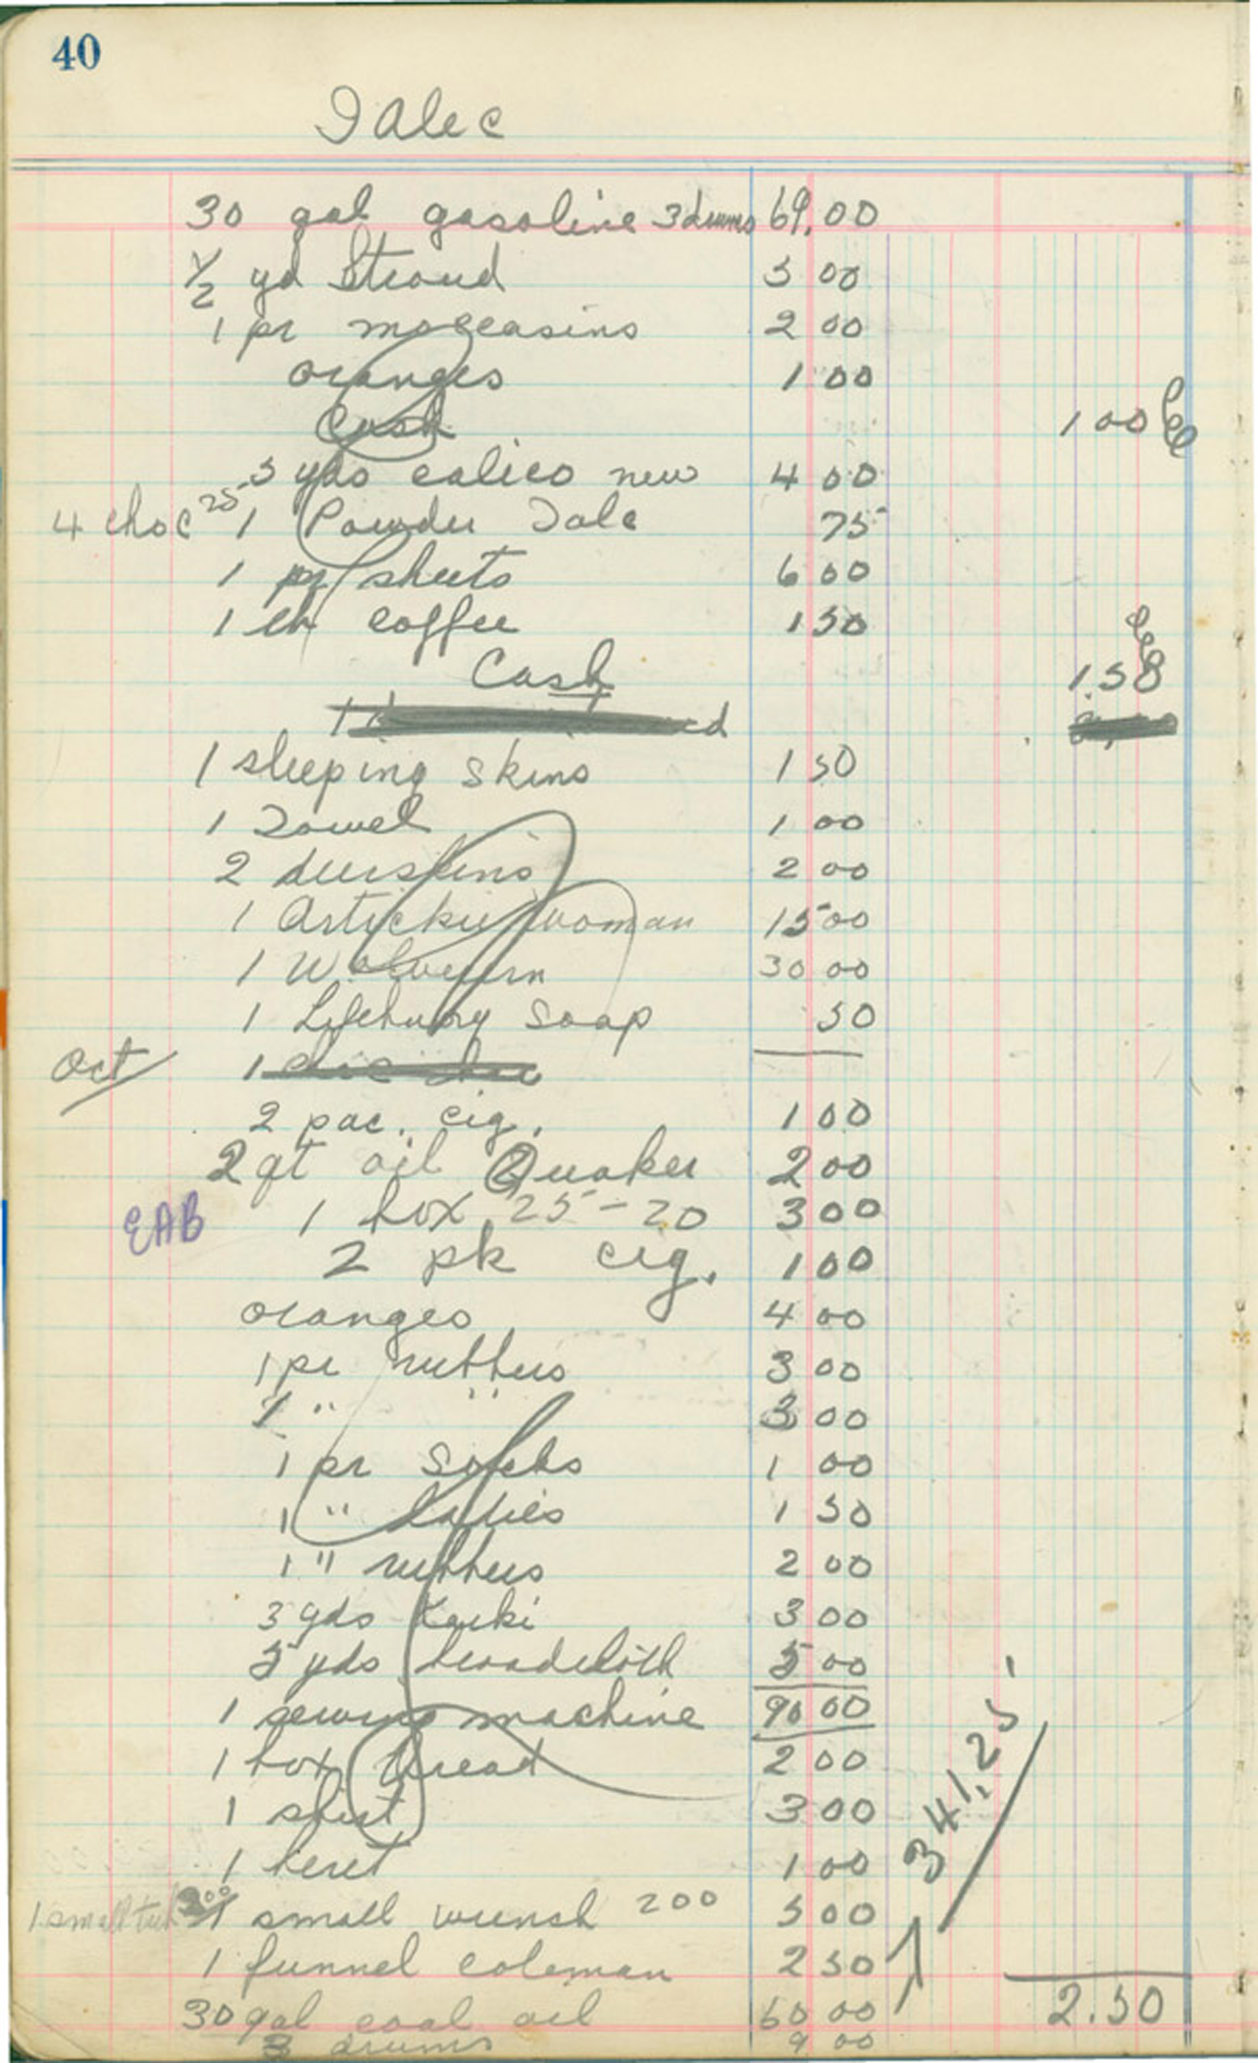 40
I Alec
30 gal gasoline 3 drums 69.00
1/2 yd Stroud 5 00
1 pr moccasins 2 00
oranges 1 00
Cash 1 00
5 yds calico new 4 00
4 choc 25 1 Powder Talc 75
1 pr sheets 6 00
1 lb coffee 1 50
Cash 1.50
1 sleeping skins 1 50
1 Towel 1 00
2 deerskins 2 00
1 woman 15 00
1 Wolvern 30 00
1 Lifebuoy Soap 50
Oct 1
2 pac. cig. 1 00
2 qt oil Quaker 2 00
EAB 1 box 25-20 3 00
2 pk cig. 1 00
oranges 4 00
1 pr rubbers 3 00
1 " " 3 00
1 pr socks 1 00
1 " ladies 1 50
1 " rubbers 2 00
3 yds Kaki 3 00
5 yds broadcloth 5 00
1 sewing machine 90 00
1 box thread 2 00
1 shirt 3 00
1 beret 1 00
341.25
1 small 300 1 small wrench 200 5 00
1 funnel coleman 2 50
30 gal coal oil 60 00 2.50
3 drums 9 00